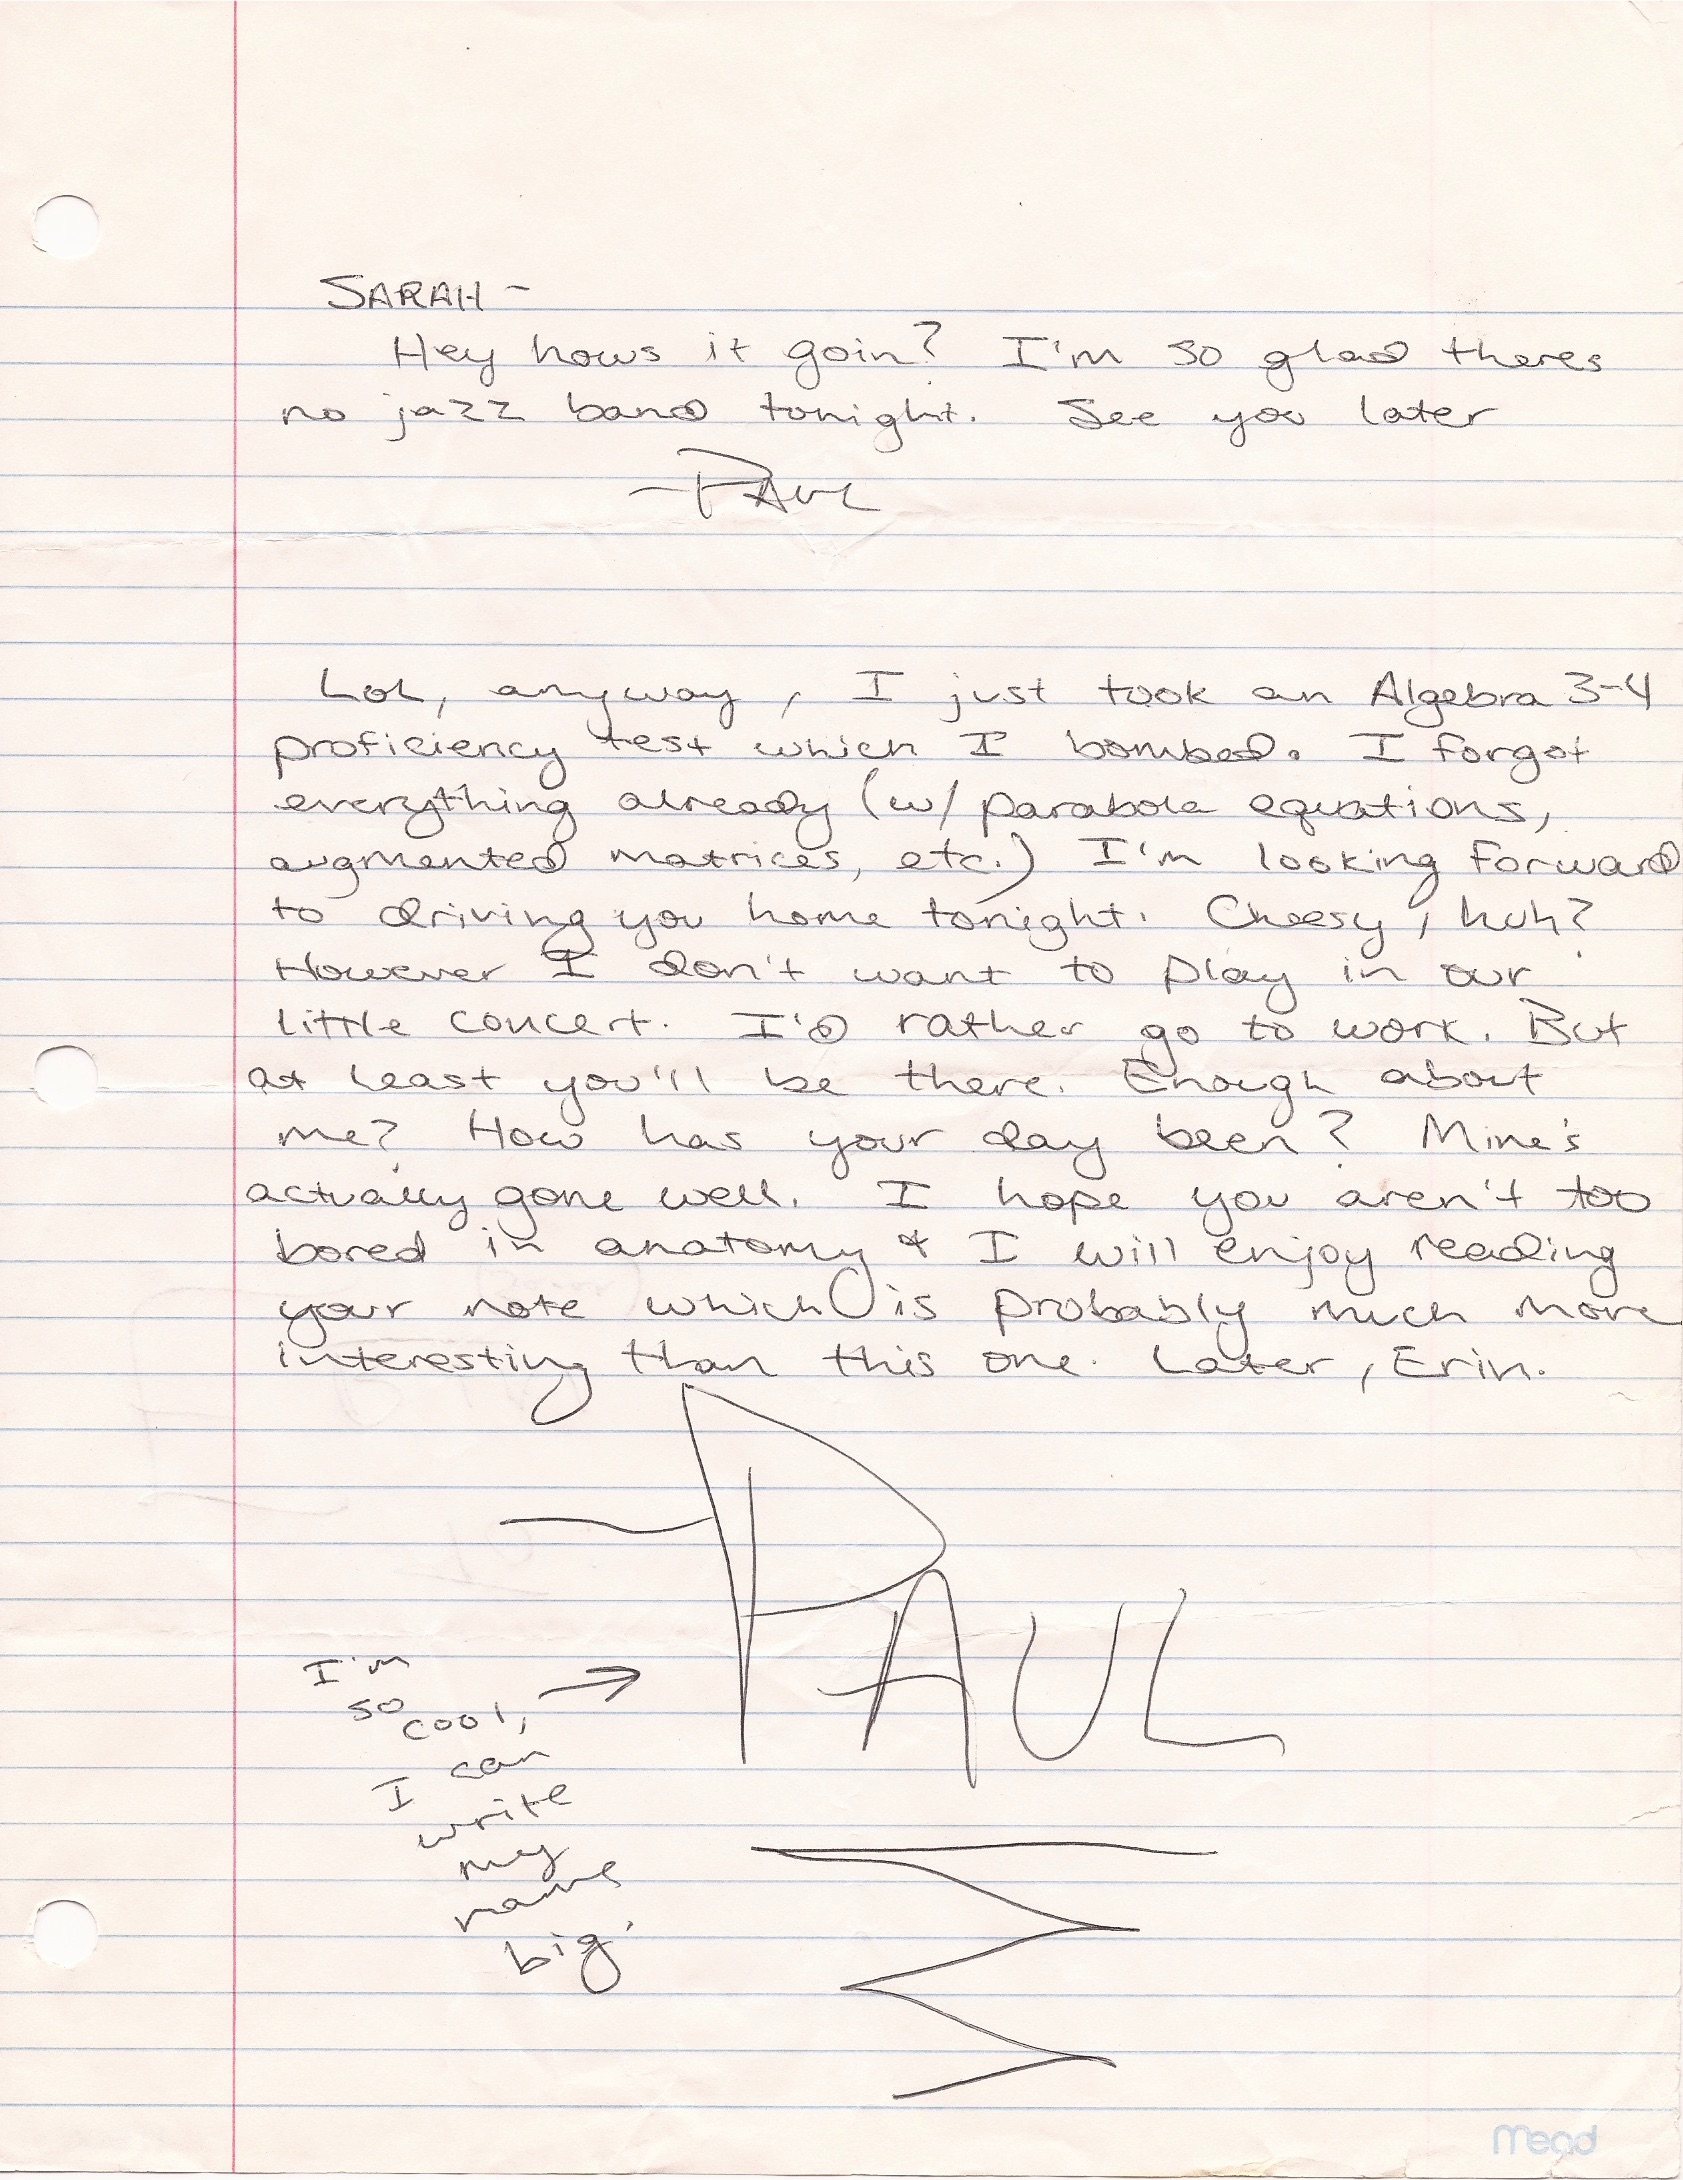 SARAH -
Hey hows it goin? I'm so glad theres
no jazz band tonight. See you later
- PAUL
Lol, anyway, I just took an Algebra 3-4
proficiency test which I bombed. I forgot
everything already (w/ parabola equations,
augmented matrices, etc.) I'm looking forward
to driving you home tonight. Cheesy, huh?
However I don't want to play in our
little concert. I'd rather go to work. But
at least you'll be there. Enough about
me? How has your day been? Mine's
actually gone well. I hope you aren't too
bored in anatomy & I will enjoy reading
your note which is probably much more
interesting than this one. Later, Erin.
- PAUL
I'm
so cool, →
I can
write
my
name
big.
Mead